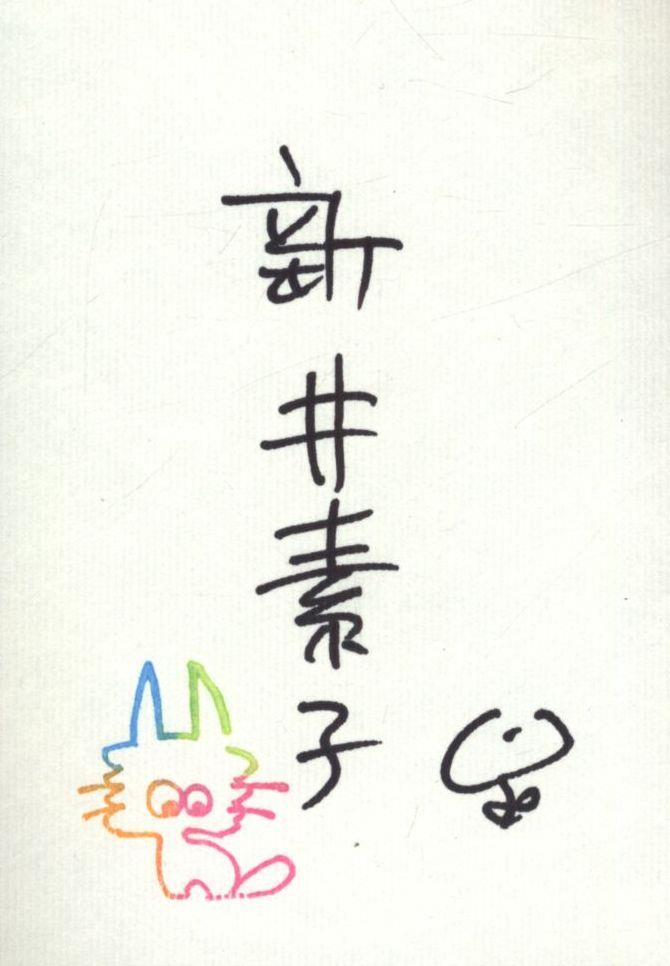 新井素子